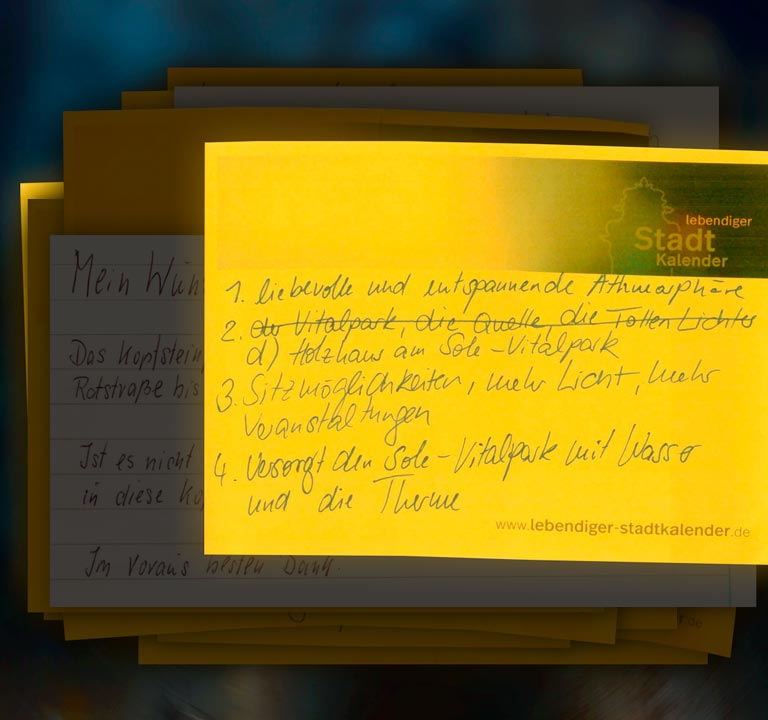 lebendiger
Stadt
Kalender
1. liebevolle und entspannende Athmosphäre
2. der Vitalpark, die Quelle, die Tollen Lichter
d) Holzhaus am Sole-Vitalpark
3. Sitzmöglichkeiten, mehr Licht, mehr
Veranstaltungen
4. Versorgt den Sole-Vitalpark mit Wasser
und die Therme
www.lebendiger-stadtkalender.de
Mein
Das Kopfstein
Rotstraße bis
Ist es nicht
in diese
Im Voraus besten Dank.